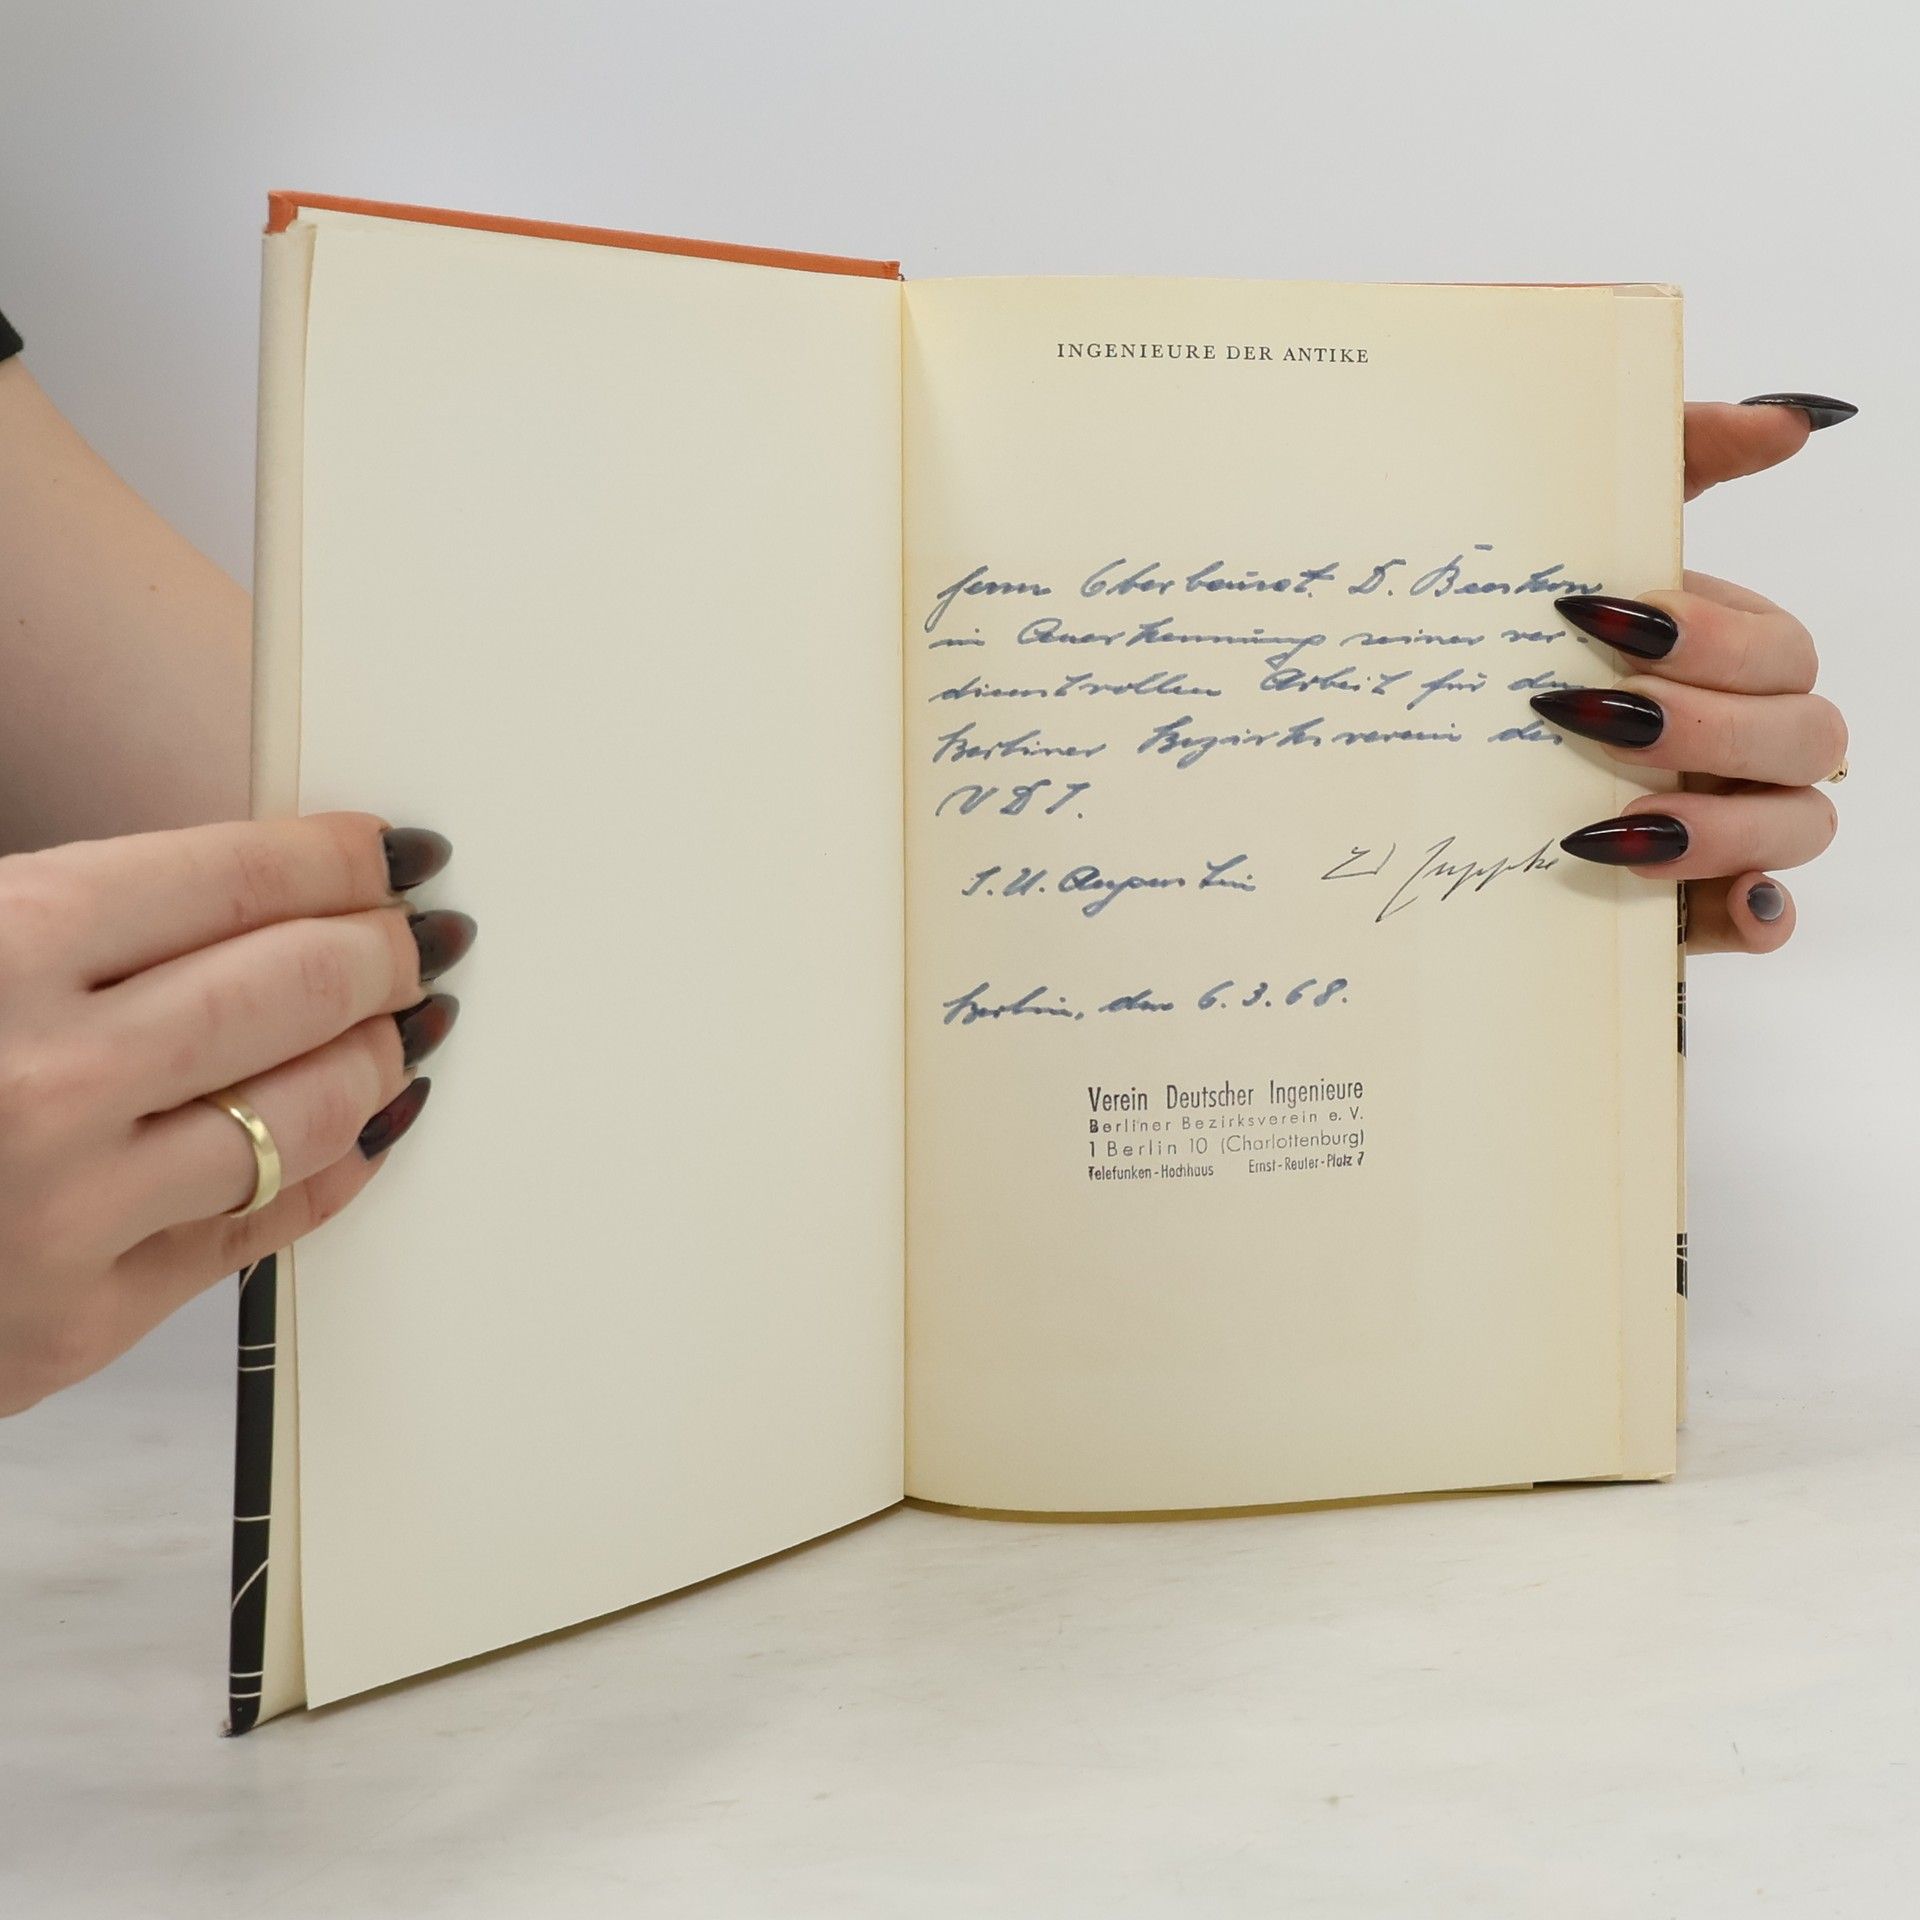 INGENIEURE DER ANTIKE
Herrn Oberbaurat D.
in Anerkennung seiner ver-
dienstvollen Arbeit für den
Berliner Bezirksverein des
VDI.
J. U. Augustin
Berlin, den 6. 3. 68.
Verein Deutscher Ingenieure
Berliner Bezirksverein e. V.
1 Berlin 10 (Charlottenburg)
Telefunken-Hochhaus Ernst-Reuter-Platz 7